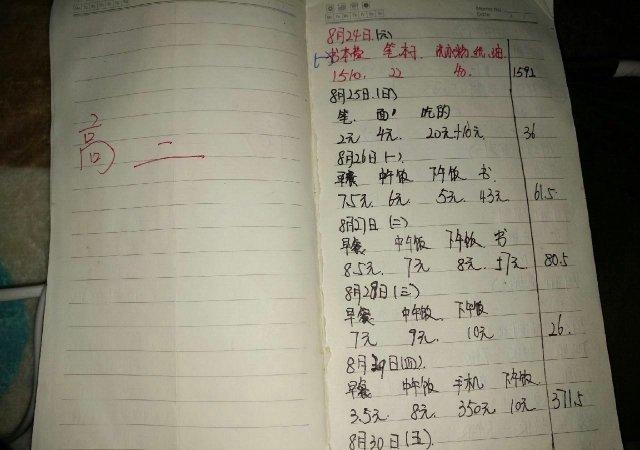 高二
8月24日.(六)
书本费 笔
1510. 22 40.
8月25日.(日)
笔. 面 吃的
2元 4元. 20元+10元 36
8月26日(一)
早餐 中午饭 下午饭 书
7.5元 6元 5元 43元 61.5
8月27日(二)
早餐 中午饭 下午饭 书
8.5元. 7元 8元. 57元 80.5
8月28日(三)
早餐 中午饭. 下午饭
7元 9元. 10元 26.
8月29日(四).
早餐 中午饭 手机 下午饭
3.5元. 8元. 350元 10元 371.5
8月30日(五).